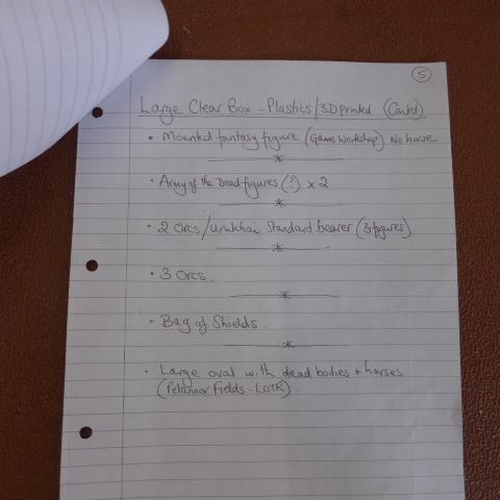 5
Large Clear Box - Plastics/3D printed (Cont'd)
• Mounted fantasy figure (Games Workshop) No horse
• Army of the Dead figures (?) x 2
• 2 Orcs/Urukhai Standard bearer (3 figures)
• 3 Orcs
• Bag of Shields.
• Large oval with dead bodies + horses
(Pelannor Fields - LOTR)